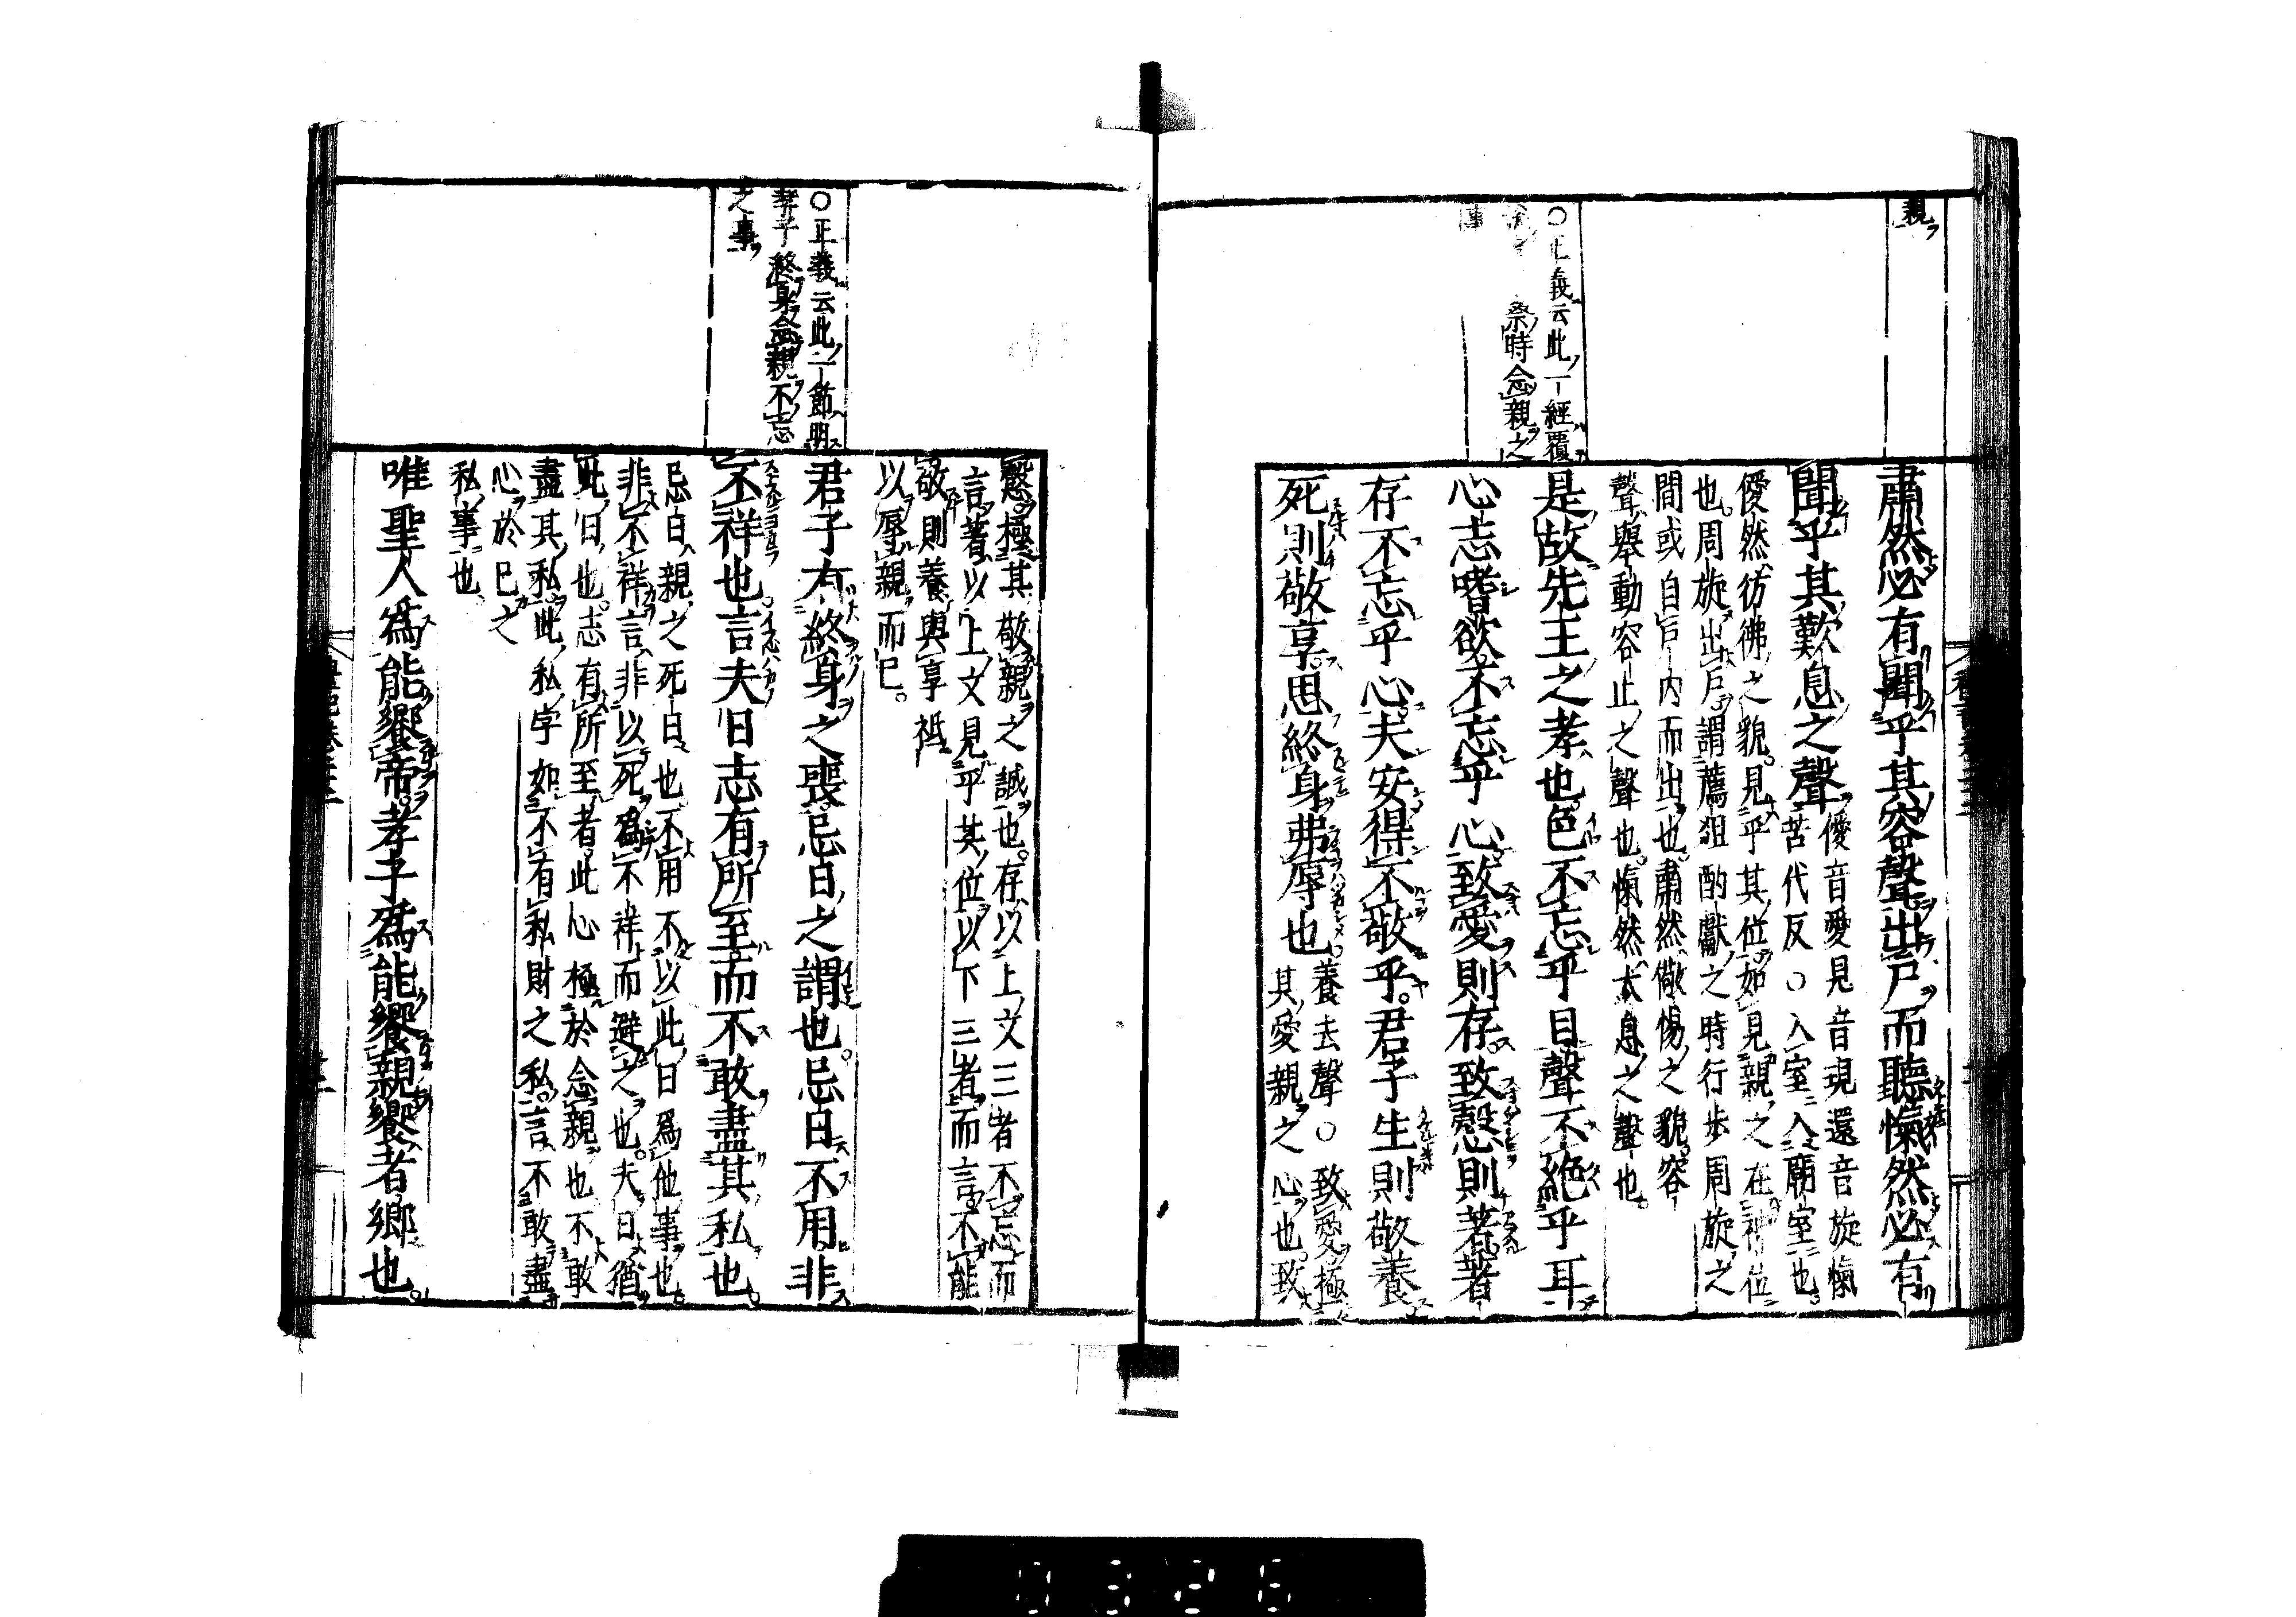 親
○正義云此一經覆
祭時念親之
事
肅然必有聞乎其容聲出戶而聽愾然必有
聞乎其歎息之聲
僾音愛見音現還音旋愾
苦代反○入室入廟室也
僾然彷彿之貌見乎其位如見親之在神位
也周旋出戶謂薦俎酌獻之時行步周旋之
間或自戶內而出也肅然儆惕之貌容
聲舉動容止之聲也愾然太息之聲也
是故先王之孝也色不忘乎目聲不絕乎耳
心志嗜欲不忘乎心致愛則存致愨則著著
存不忘乎心夫安得不敬乎君子生則敬養
死則敬享思終身弗辱也
養去聲○致愛極
其愛親之心也致
○正義云此一節明
孝子終身念親不忘
之事
愨極其敬親之誠也存以上文三者不忘而
言著以上文見乎其位以下三者而言不能
敬則養與享祇
以辱親而已
君子有終身之喪忌日之謂也忌日不用非
不祥也言夫日志有所至而不敢盡其私也
忌日親之死日也不用不以此日爲他事也
非不祥言非以死爲不祥而避之也夫日猶
此日也志有所至者此心極於念親也不敢
盡其私此私字如不有私財之私言不敢盡
心於已之
私事也
唯聖人爲能饗帝孝子爲能饗親饗者鄉也
0326